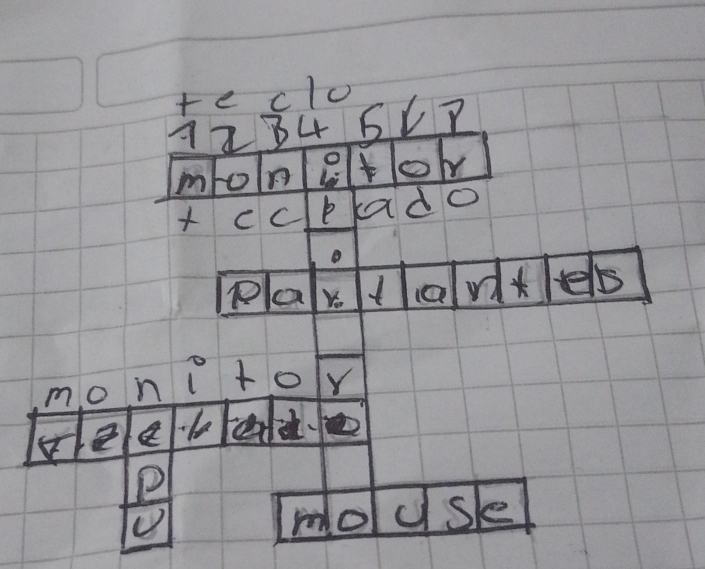 te clo
1234567
monitor
tecpado
partantes
monitor
teclado
p
u
mouse